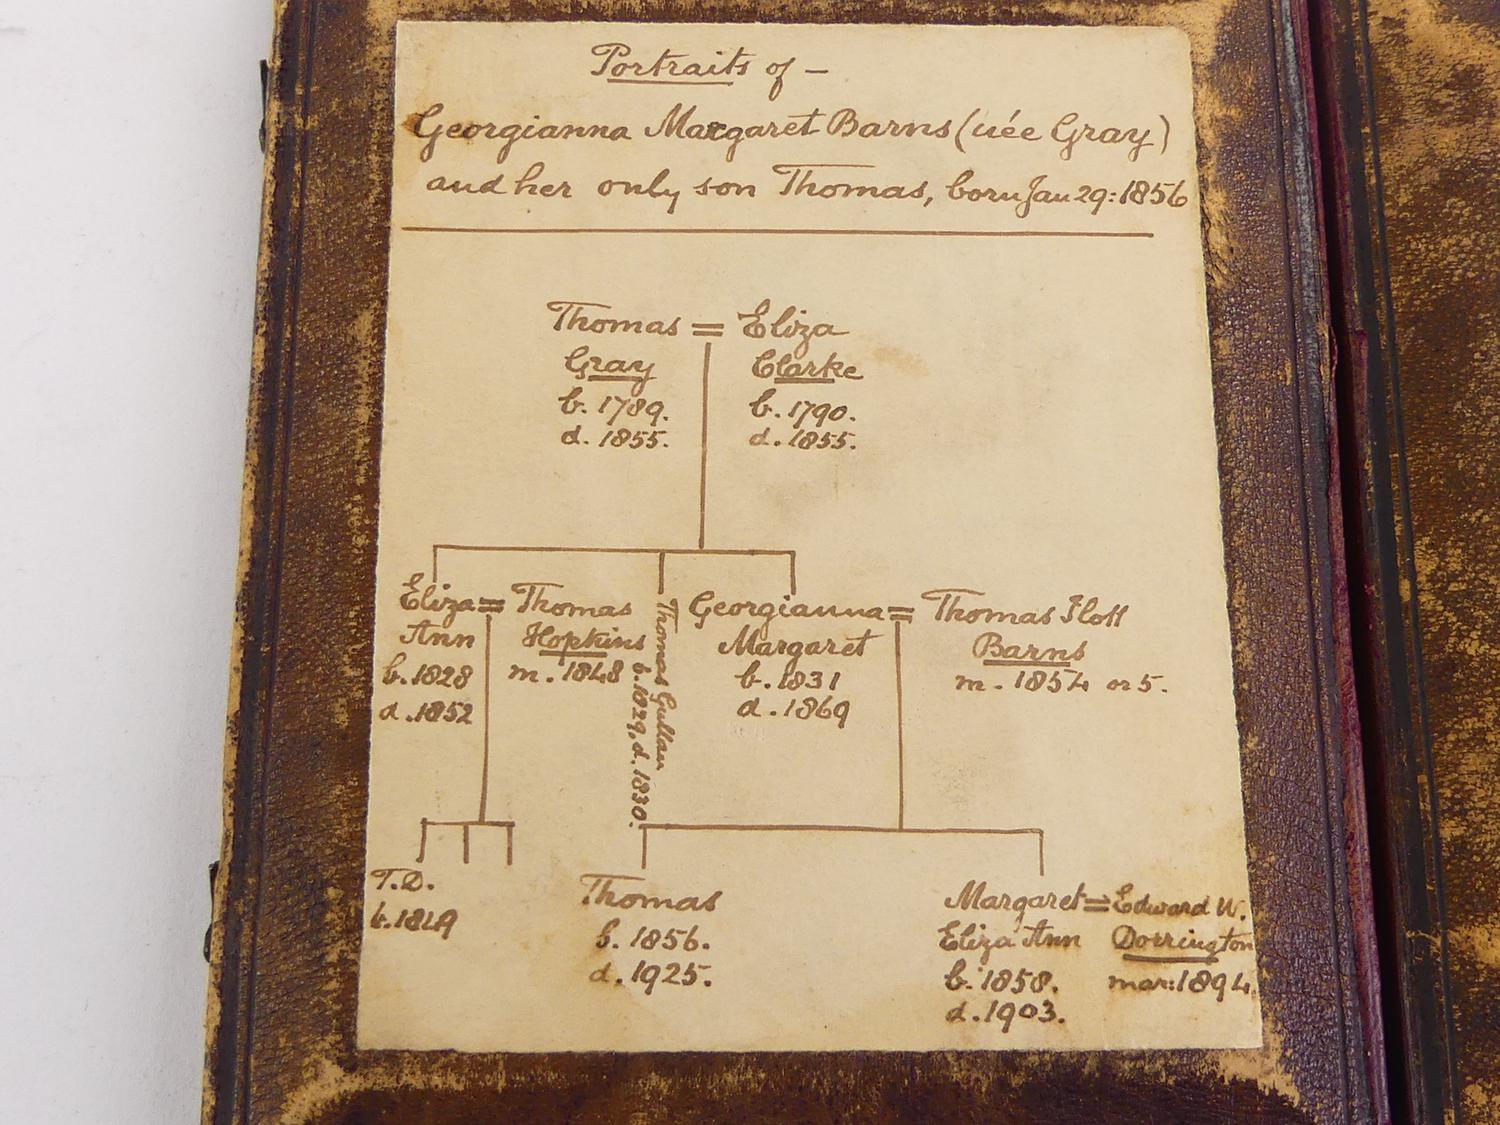 Portraits of —
Georgianna Margaret Barns (née Gray)
and her only son Thomas, born Jan 29: 1856
Thomas = Eliza
Gray Clarke
b. 1789. b. 1790.
d. 1855. d. 1855.
Eliza = Thomas
Ann Hopkins
b. 1828 m. 1848
d. 1852
Thomas
b. 1829, d. 1830.
Georgianna = Thomas
Margaret Barns
b. 1831 m. 1854 or 5.
d. 1869
T.D.
b. 1849
Thomas
b. 1856.
d. 1925.
Margaret = Edward W.
Eliza Ann Dorrington
b. 1858. mar: 1894.
d. 1903.